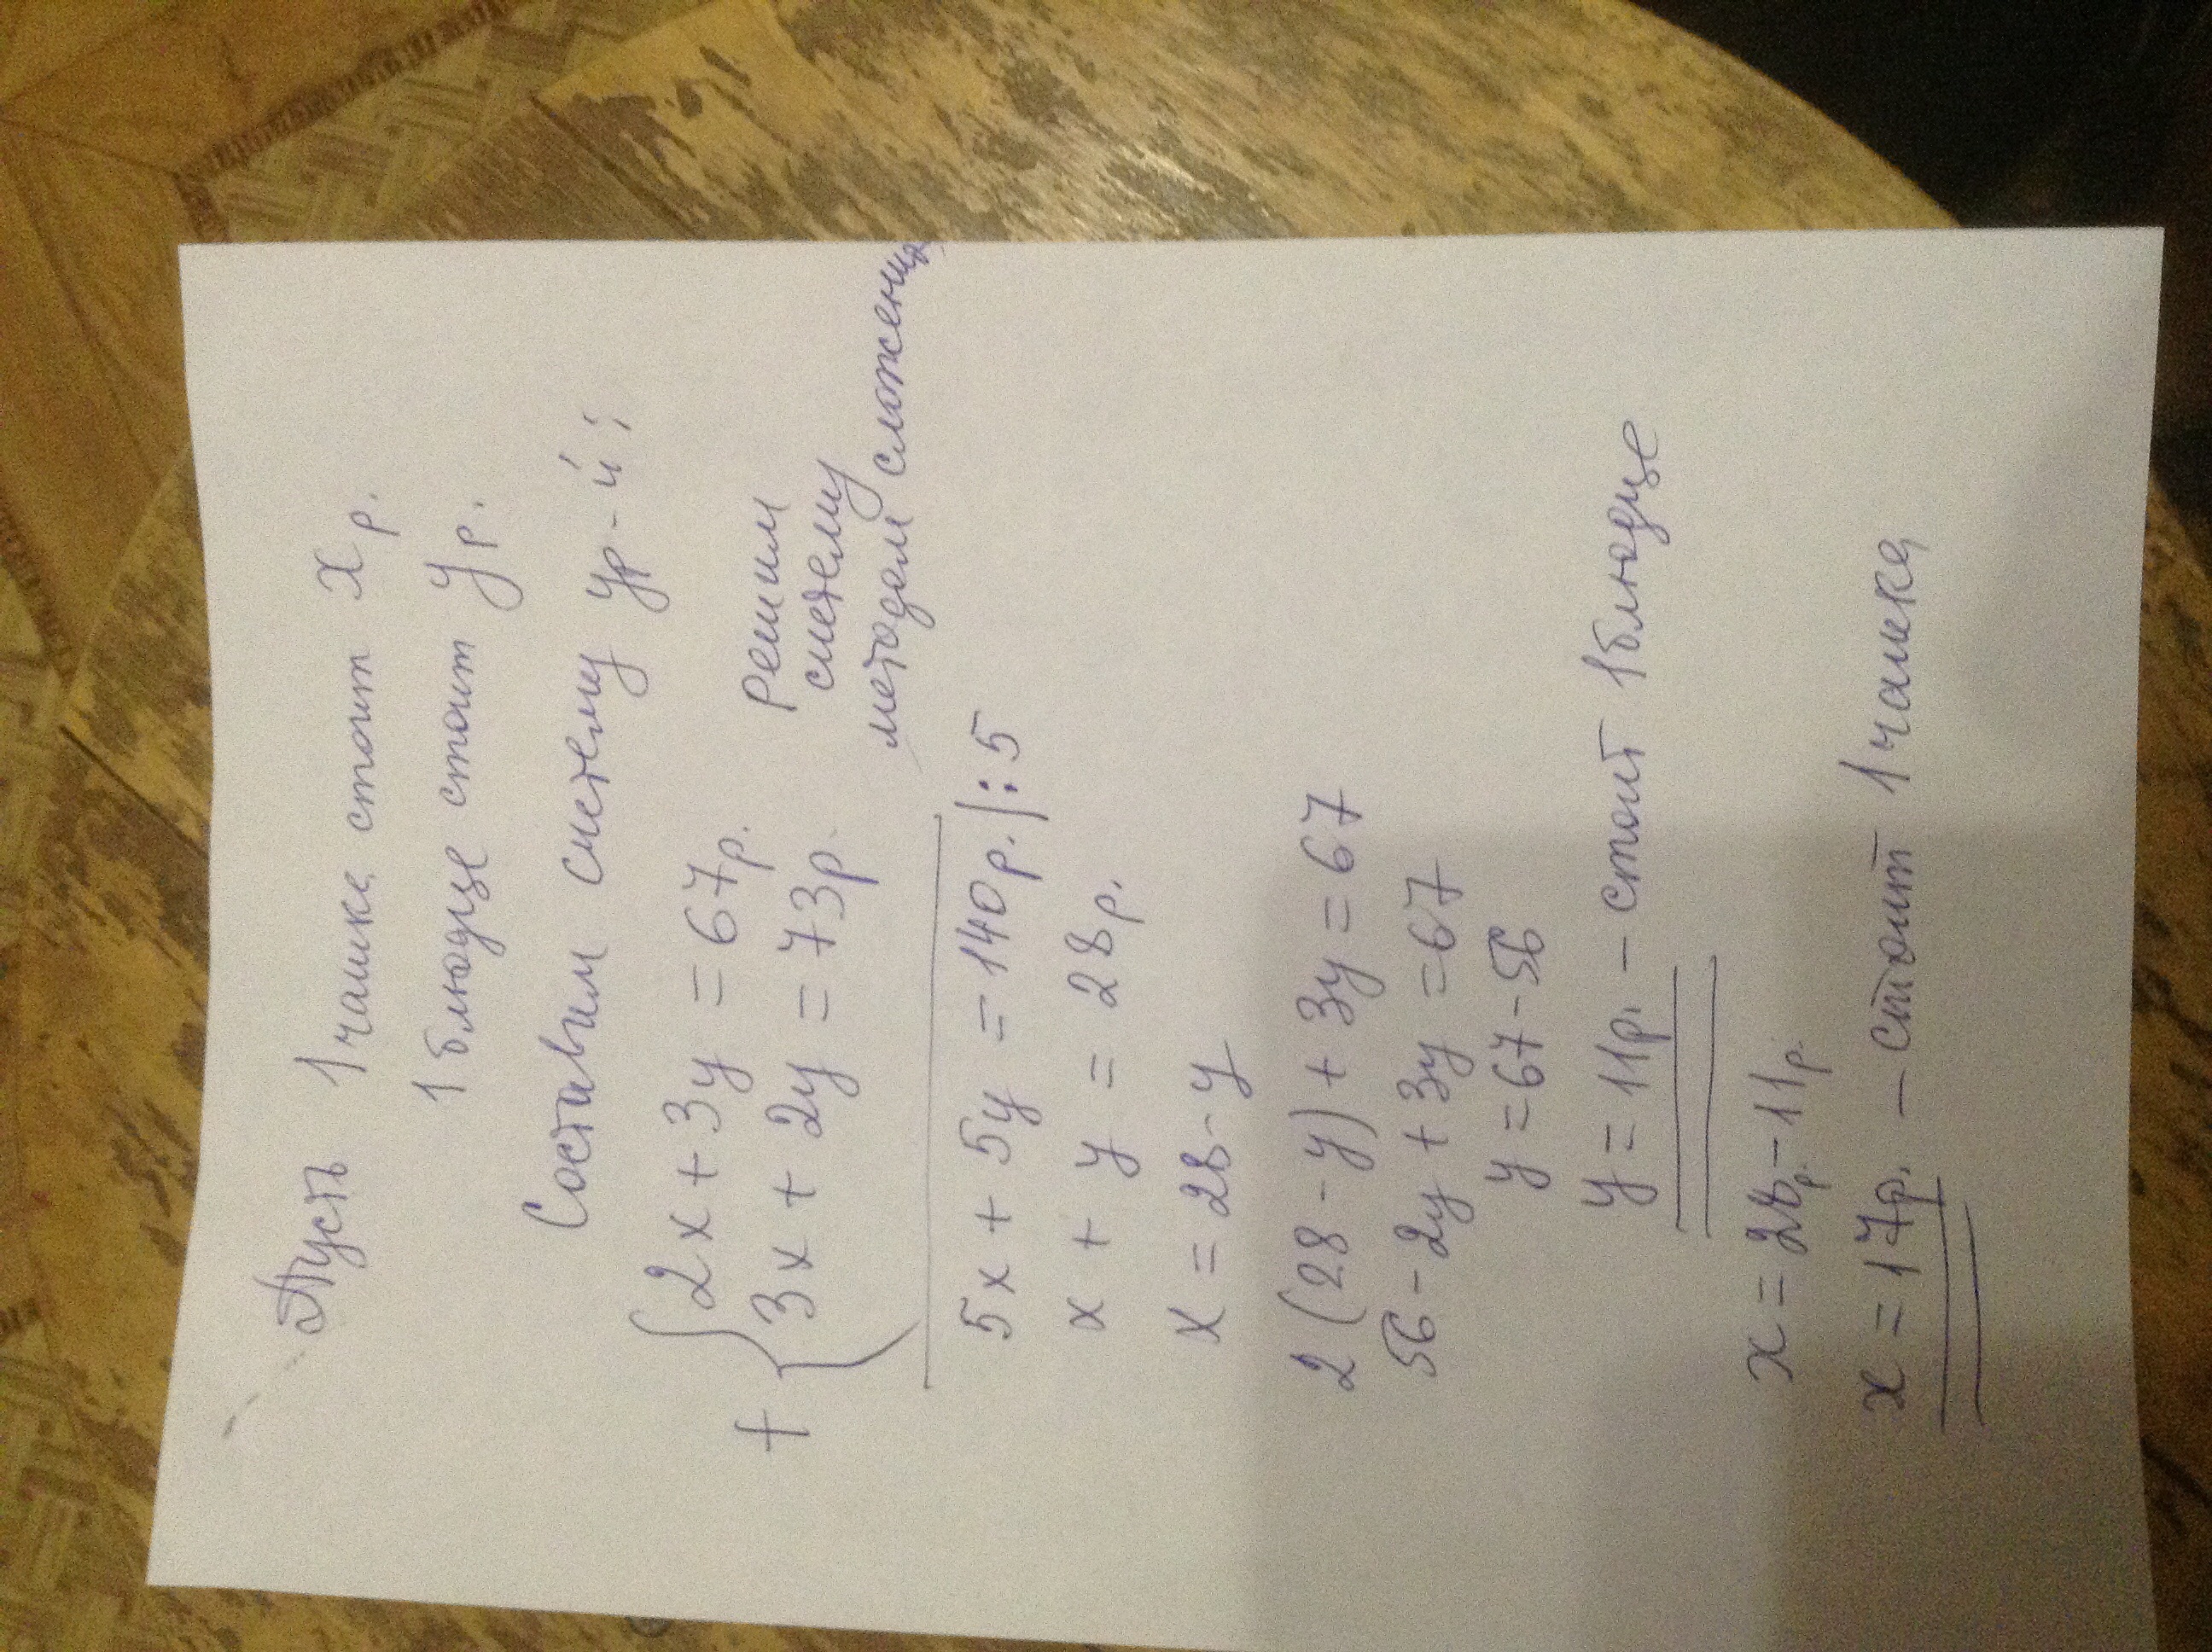 Пусть 1 чашка стоит x р.
1 блюдце стоит y р.
Составим систему ур-й:
2x + 3y = 67р.
+ 3x + 2y = 73р.
Решим
систему
методом сложения
5x + 5y = 140р. |:5
x + y = 28р.
x = 28 - y
2(28 - y) + 3y = 67
56 - 2y + 3y = 67
y = 67 - 56
y = 11р. - стоит 1 блюдце
x = 28р. - 11р.
x = 17р. - стоит 1 чашка